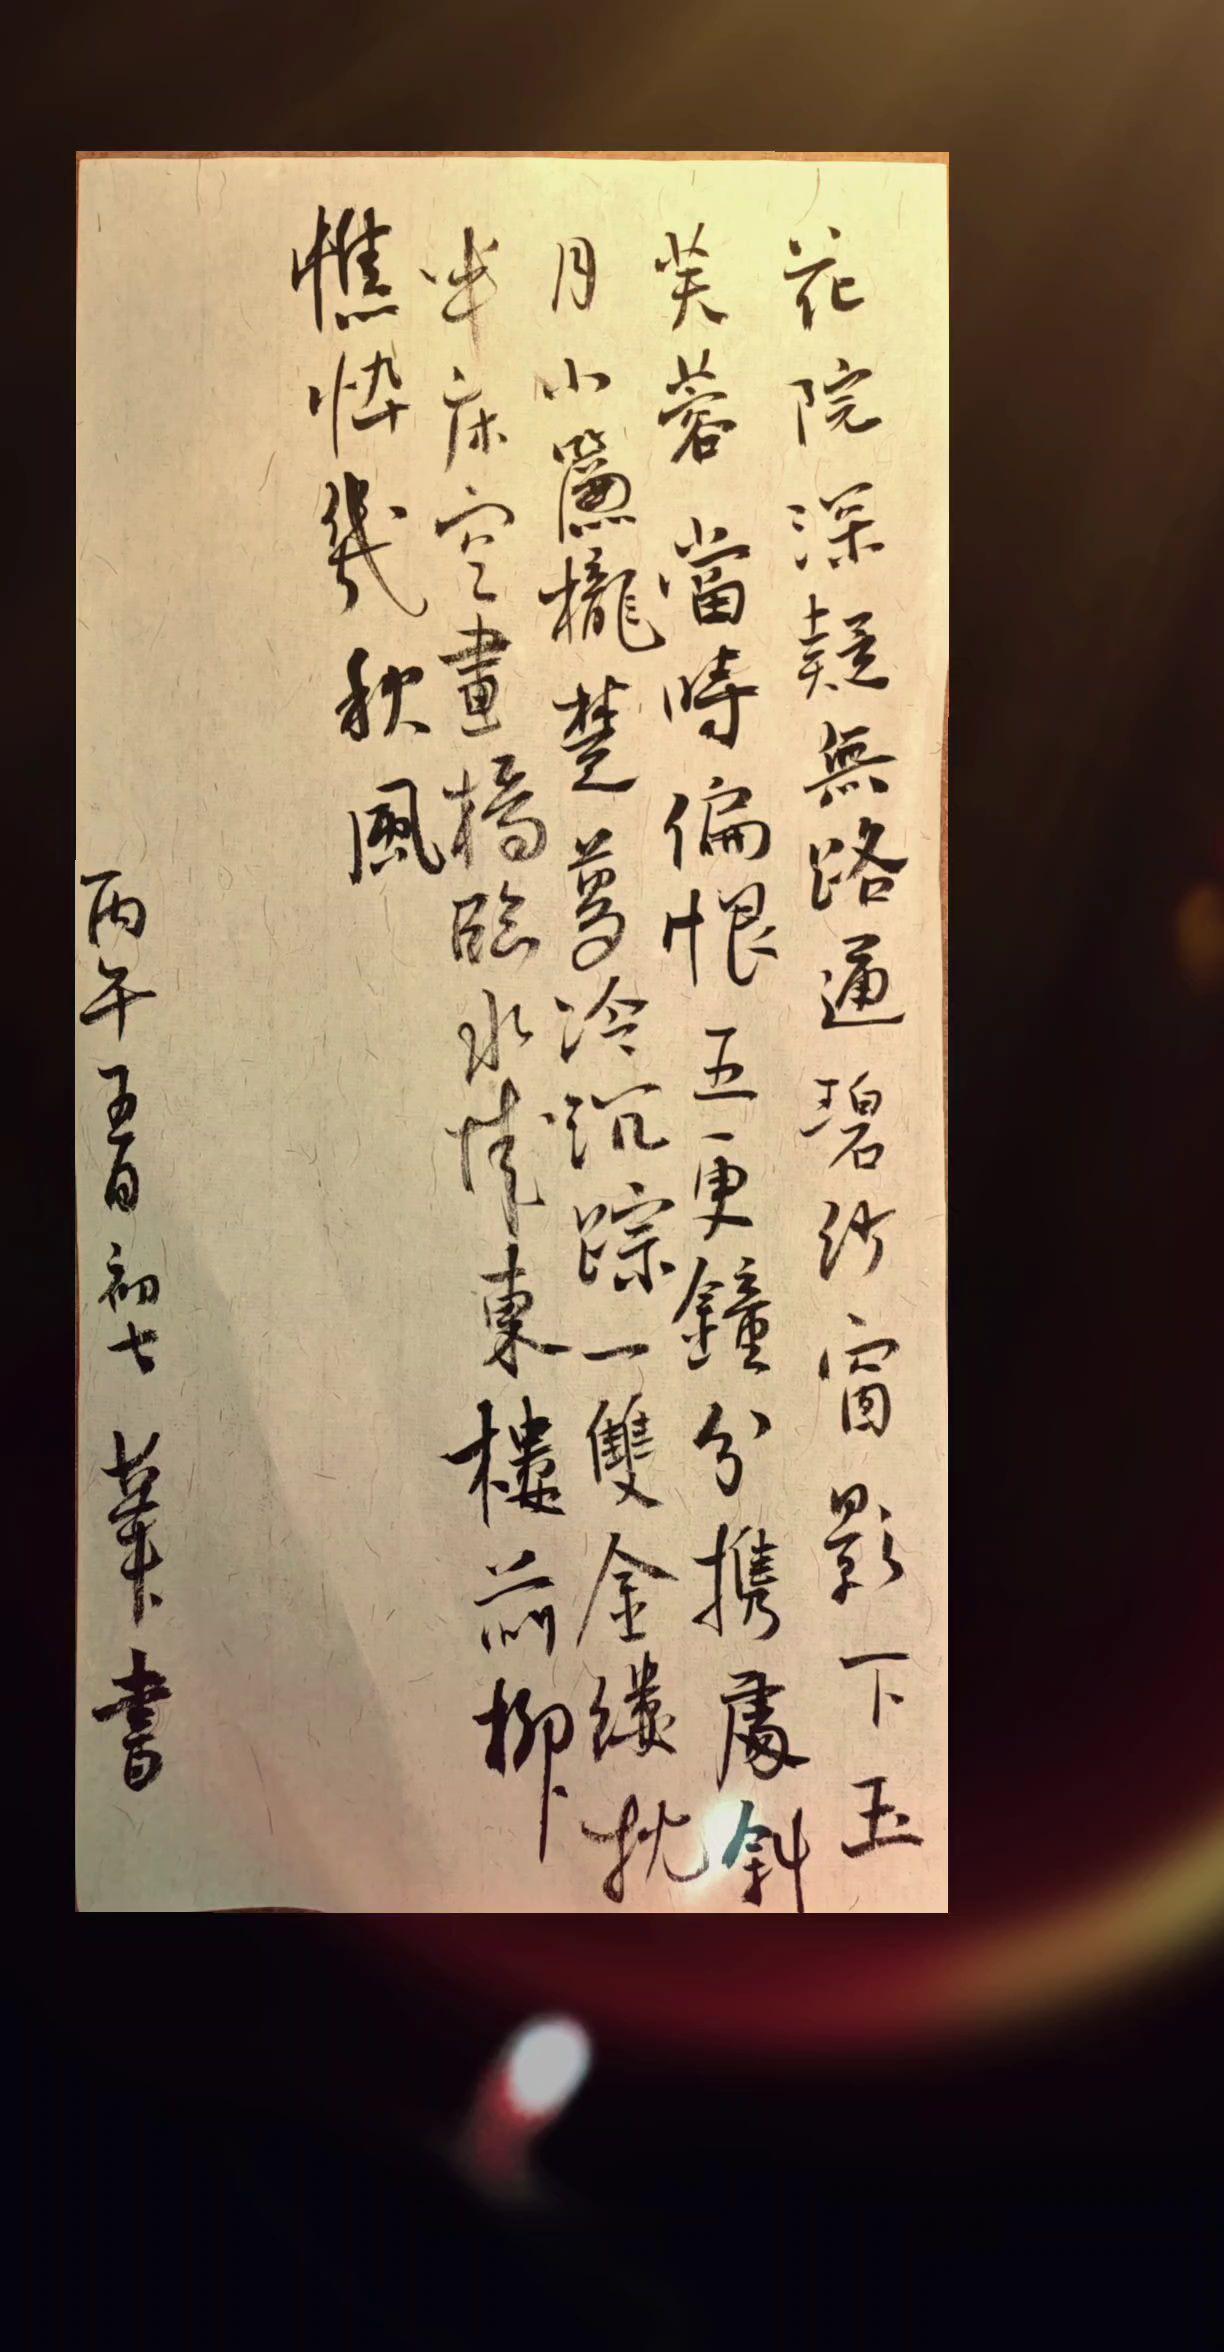 花院深疑無路通碧紗窗影下玉
芙蓉當時偏恨五更鐘分携處斜
月小簾櫳楚夢冷沉踪一雙金縷枕
半床空畫橋臨水鳳城東樓前柳
憔悴幾秋風
丙午五月初七 華書